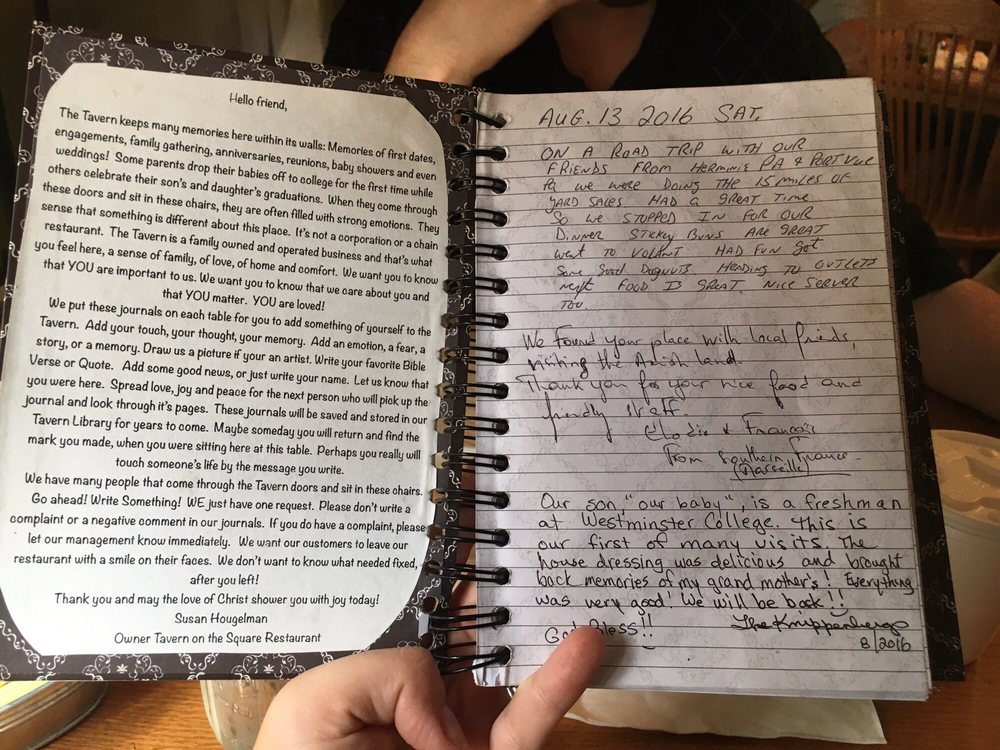 Hello friend,
The Tavern keeps many memories here within its walls: Memories of first dates,
engagements, family gathering, anniversaries, reunions, baby showers and even
weddings! Some parents drop their babies off to college for the first time while
others celebrate their son's and daughter's graduations. When they come through
these doors and sit in these chairs, they are often filled with strong emotions. They
sense that something is different about this place. It's not a corporation or a chain
restaurant. The Tavern is a family owned and operated business and that's what
you feel here, a sense of family, of love, of home and comfort. We want you to know
that YOU are important to us. We want you to know that we care about you and
that YOU matter. YOU are loved!
We put these journals on each table for you to add something of yourself to the
Tavern. Add your touch, your thought, your memory. Add an emotion, a fear, a
story, or a memory. Draw us a picture if your an artist. Write your favorite Bible
Verse or Quote. Add some good news, or just write your name. Let us know that
you were here. Spread love, joy and peace for the next person who will pick up the
journal and look through it's pages. These journals will be saved and stored in our
Tavern Library for years to come. Maybe someday you will return and find the
mark you made, when you were sitting here at this table. Perhaps you really will
touch someone's life by the message you write.
We have many people that come through the Tavern doors and sit in these chairs.
Go ahead! Write Something! WE just have one request. Please don't write a
complaint or a negative comment in our journals. If you do have a complaint, please
let our management know immediately. We want our customers to leave our
restaurant with a smile on their faces. We don't want to know what needed fixed,
after you left!
Thank you and may the love of Christ shower you with joy today!
Susan Hougelman
Owner Tavern on the Square Restaurant
AUG. 13 2016 SAT.
ON A ROAD TRIP WITH OUR
FRIENDS FROM HERMINIE PA & PORT VUE
Pa WE WERE DOING THE 15 MILES OF
YARD SALES HAD A GREAT TIME
SO WE STOPPED IN FOR OUR
DINNER STICKY BUNS ARE GREAT
WENT TO VOLANT HAD FUN got
Some Good DogNuts HEADING TO OUTLETS
next FOOD IS GREAT NICE SERVER
TOO.
We Found your place with local friends,
visiting the Amish land.
Thank you for your nice food and
friendly staff.
Elodie & François
from Southern France
(Marseille)
Our son, "our baby", is a freshman
at Westminster College. This is
our first of many visits. The
house dressing was delicious and brought
back memories of my grand mother's! Everything
was very good! We will be back!!
God Bless!! The Knippenbergs
8/2016